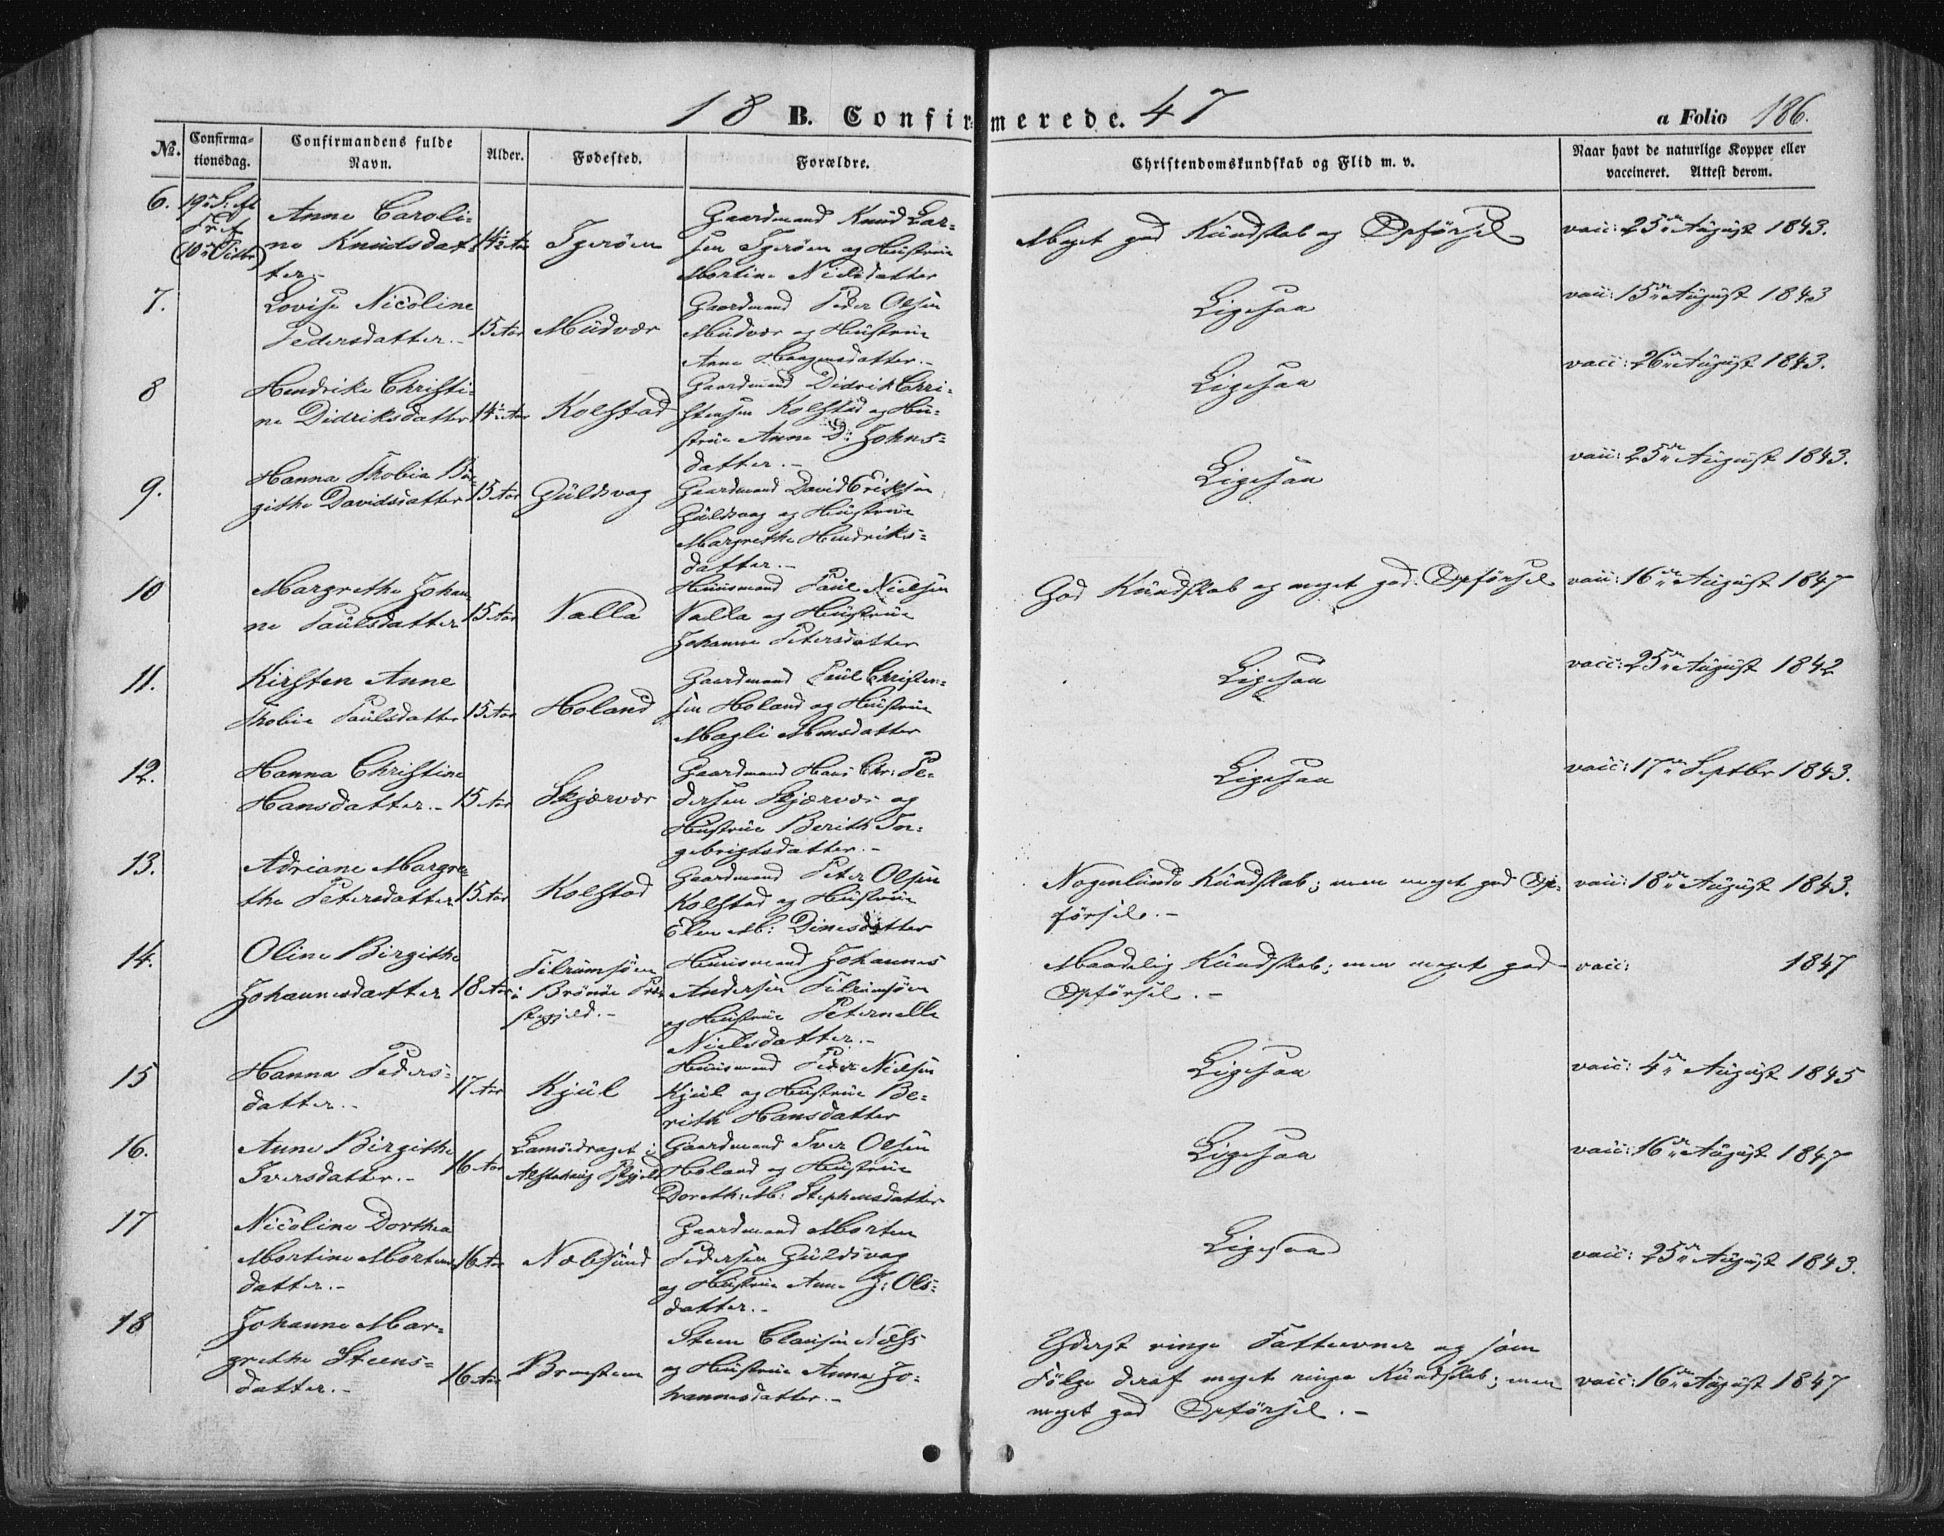 18 B. Confirmerede. 47
a Folio 186.
No. Confirmationsdag. Confirmandens fulde Navn. Alder. Fødested. Forældre. Christendomskundskab og Flid m. v. Naar havt de naturlige Kopper eller vaccineret. Attest derom.
6. 19de S: eft
Tr: ef
Anne Caroli-
ne Knudsdat-
ter.-
14½ Aar
Igerøen
Gaardmand Knud Lar-
sen Igerøen og Hustrue
Martine Nielsdatter
Meget god Kundskab og Opførsel
vacc: 25de August 1843.
7.
Lovise Nicoline
Pedersdatter.-
15 Aar
Mudvær
Gaardmand Peder Olsen
Mudvær og Hustrue
Anne Haagensdatter.-
Ligesaa
vacc: 15de August 1843
8
Hendrike Christi-
ne Didriksdatter
14½ Aar
Kolstad
Gaardmand Didrik Chri-
stensen Kolstad og Hu-
strue Anne D: Johns-
datter.-
Ligesaa
vacc: 26de August 1843.
9.
Hanna Thobia Bir-
githe Davidsdatter
15 Aar
Guldsvag
Gaardmand David Eriksen
Guldsvag og Hustrue
Margrethe Hendriks-
datter.-
Ligesaa
vacc: 25de August 1843.
10
Margrethe Johan
ne Paulsdatter
15 Aar
Valla
Huusmand Paul Nielsen
Valla og Hustrue
Johanne Petersdatter
God Kundskab og meget god Opførsel
vacc: 16de August 1847
11.
Kirsten Anne
Thobie Paulsdatter
15 Aar
Holand
Gaardmand Paul Christen-
sen Holand og Hustrue
Magli Monsdatter
Ligesaa
vacc: 25de August 1842
12.
Hanna Christine
Hansdatter.-
15 Aar
Skjærvær
Gaardmand Hans Chr: Pe-
dersen Skjærvær og
Hustrue Berith In-
gebrigtsdatter.-
Ligesaa
vacc: 17de Septbr 1843.
13.
Adriane Margre-
the Petersdatter
15 Aar
Kolstad
Gaardmand Peter Olsen
Kolstad og Hustrue
Elen M: Dinesdatter
Nogenlunde Kundskab; men meget god Op-
førsel.-
vacc: 18de August 1843.
14.
Oline Birgithe
Johannesdatter
18 Aar
Tilrumsøen
i Brønøe Præ
stegjeld.-
Huusmand Johannes
Andersen Tilrumsøen
og Hustrue Peternelle
Nielsdatter.-
Maadelig Kundskab; men meget god
Opførsel.-
vacc: 1847
15
Hanna Peders-
datter.-
17 Aar
Kjul
Huusmand Peder Nielsen
Kjul og Hustrue Be-
rith Hansdatter
Ligesaa
vacc: 4de August 1845
16.
Anne Birgithe
Iversdatter.-
16 Aar
i
Alstahaug
Gaardmand Iver Olsen
Holand og Hustrue
Doreth: M: Stephensdatter
Ligesaa
vacc: 16de August 1847
17
Nicoline Dorthea
Martine Mortens
datter.-
16 Aar
Næbsund
Gaardmand Morten
Pedersen Guldsvag
og Hustrue Anne J: Ols-
datter.-
Ligesaa
vacc: 25de August 1843.
18
Johanne Mar-
grethe Steens-
datter.-
16 Aar
Breesteen
Steen Clausen
og Hustrue Anna Jo-
hannesdatter.-
Yderst ringe Fatteevner og som
Følge deraf meget ringe Kundskab; men
meget god Opførsel.-
vacc: 16de August 1847